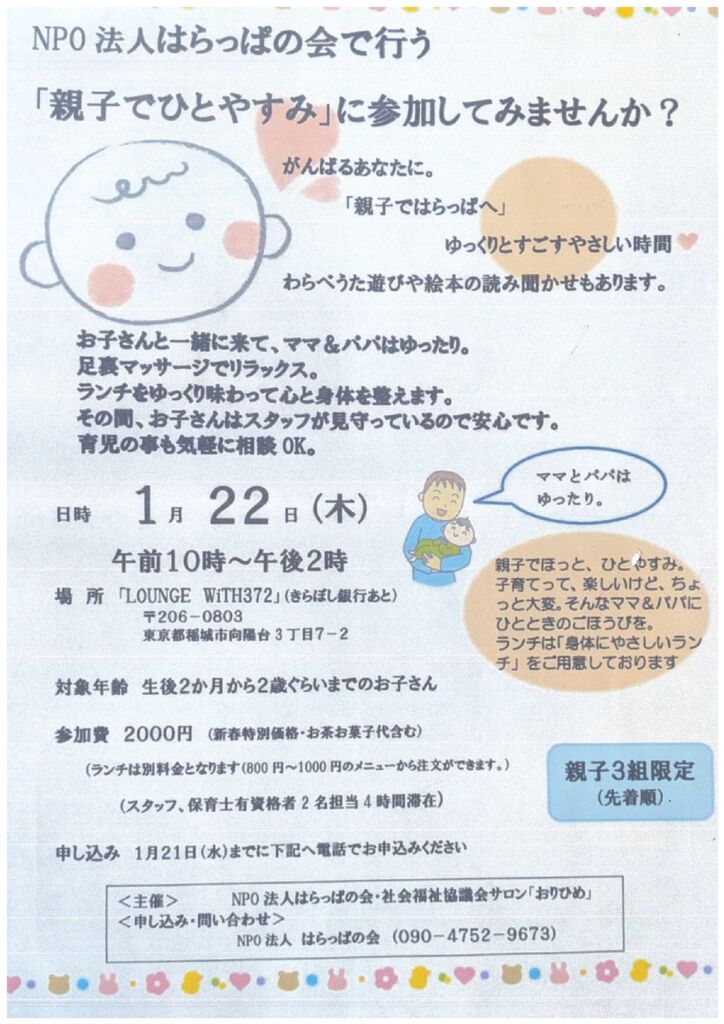 NPO 法人はらっぱの会で行う
「親子でひとやすみ」に参加してみませんか？
がんばるあなたに。
「親子ではらっぱへ」
ゆっくりとすごすやさしい時間
わらべうた遊びや絵本の読み聞かせもあります。
お子さんと一緒に来て、ママ＆パパはゆったり。
足裏マッサージでリラックス。
ランチをゆっくり味わって心と身体を整えます。
その間、お子さんはスタッフが見守っているので安心です。
育児の事も気軽に相談 OK。
ママとパパは
ゆったり。
日時 1 月 22 日 (木)
午前10時～午後2時
場 所 「LOUNGE WiTH372」(きらぼし銀行あと)
〒206－0803
東京都稲城市向陽台 3 丁目7－2
親子でほっと、ひとやすみ。
子育てって、楽しいけど、ちょ
っと大変。そんなママ＆パパに
ひとときのごほうびを。
ランチは「身体にやさしいラン
チ」をご用意しております
対象年齢 生後2か月から2歳ぐらいまでのお子さん
参加費 2000円 (新春特別価格・お茶お菓子代含む)
(ランチは別料金となります(800 円～1000 円のメニューから注文ができます。)
(スタッフ、保育士有資格者 2 名担当 4 時間滞在)
親子3組限定
(先着順)
申し込み 1月21日(水)までに下記へ電話でお申込みください
＜主催＞ NPO 法人はらっぱの会・社会福祉協議会サロン「おりひめ」
＜申し込み・問い合わせ＞
NPO 法人 はらっぱの会 (090-4752-9673)